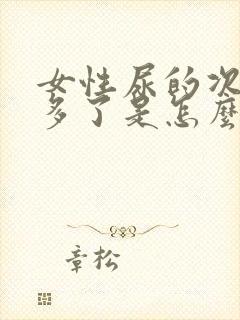 女性尿的次
多了是怎麽
章松